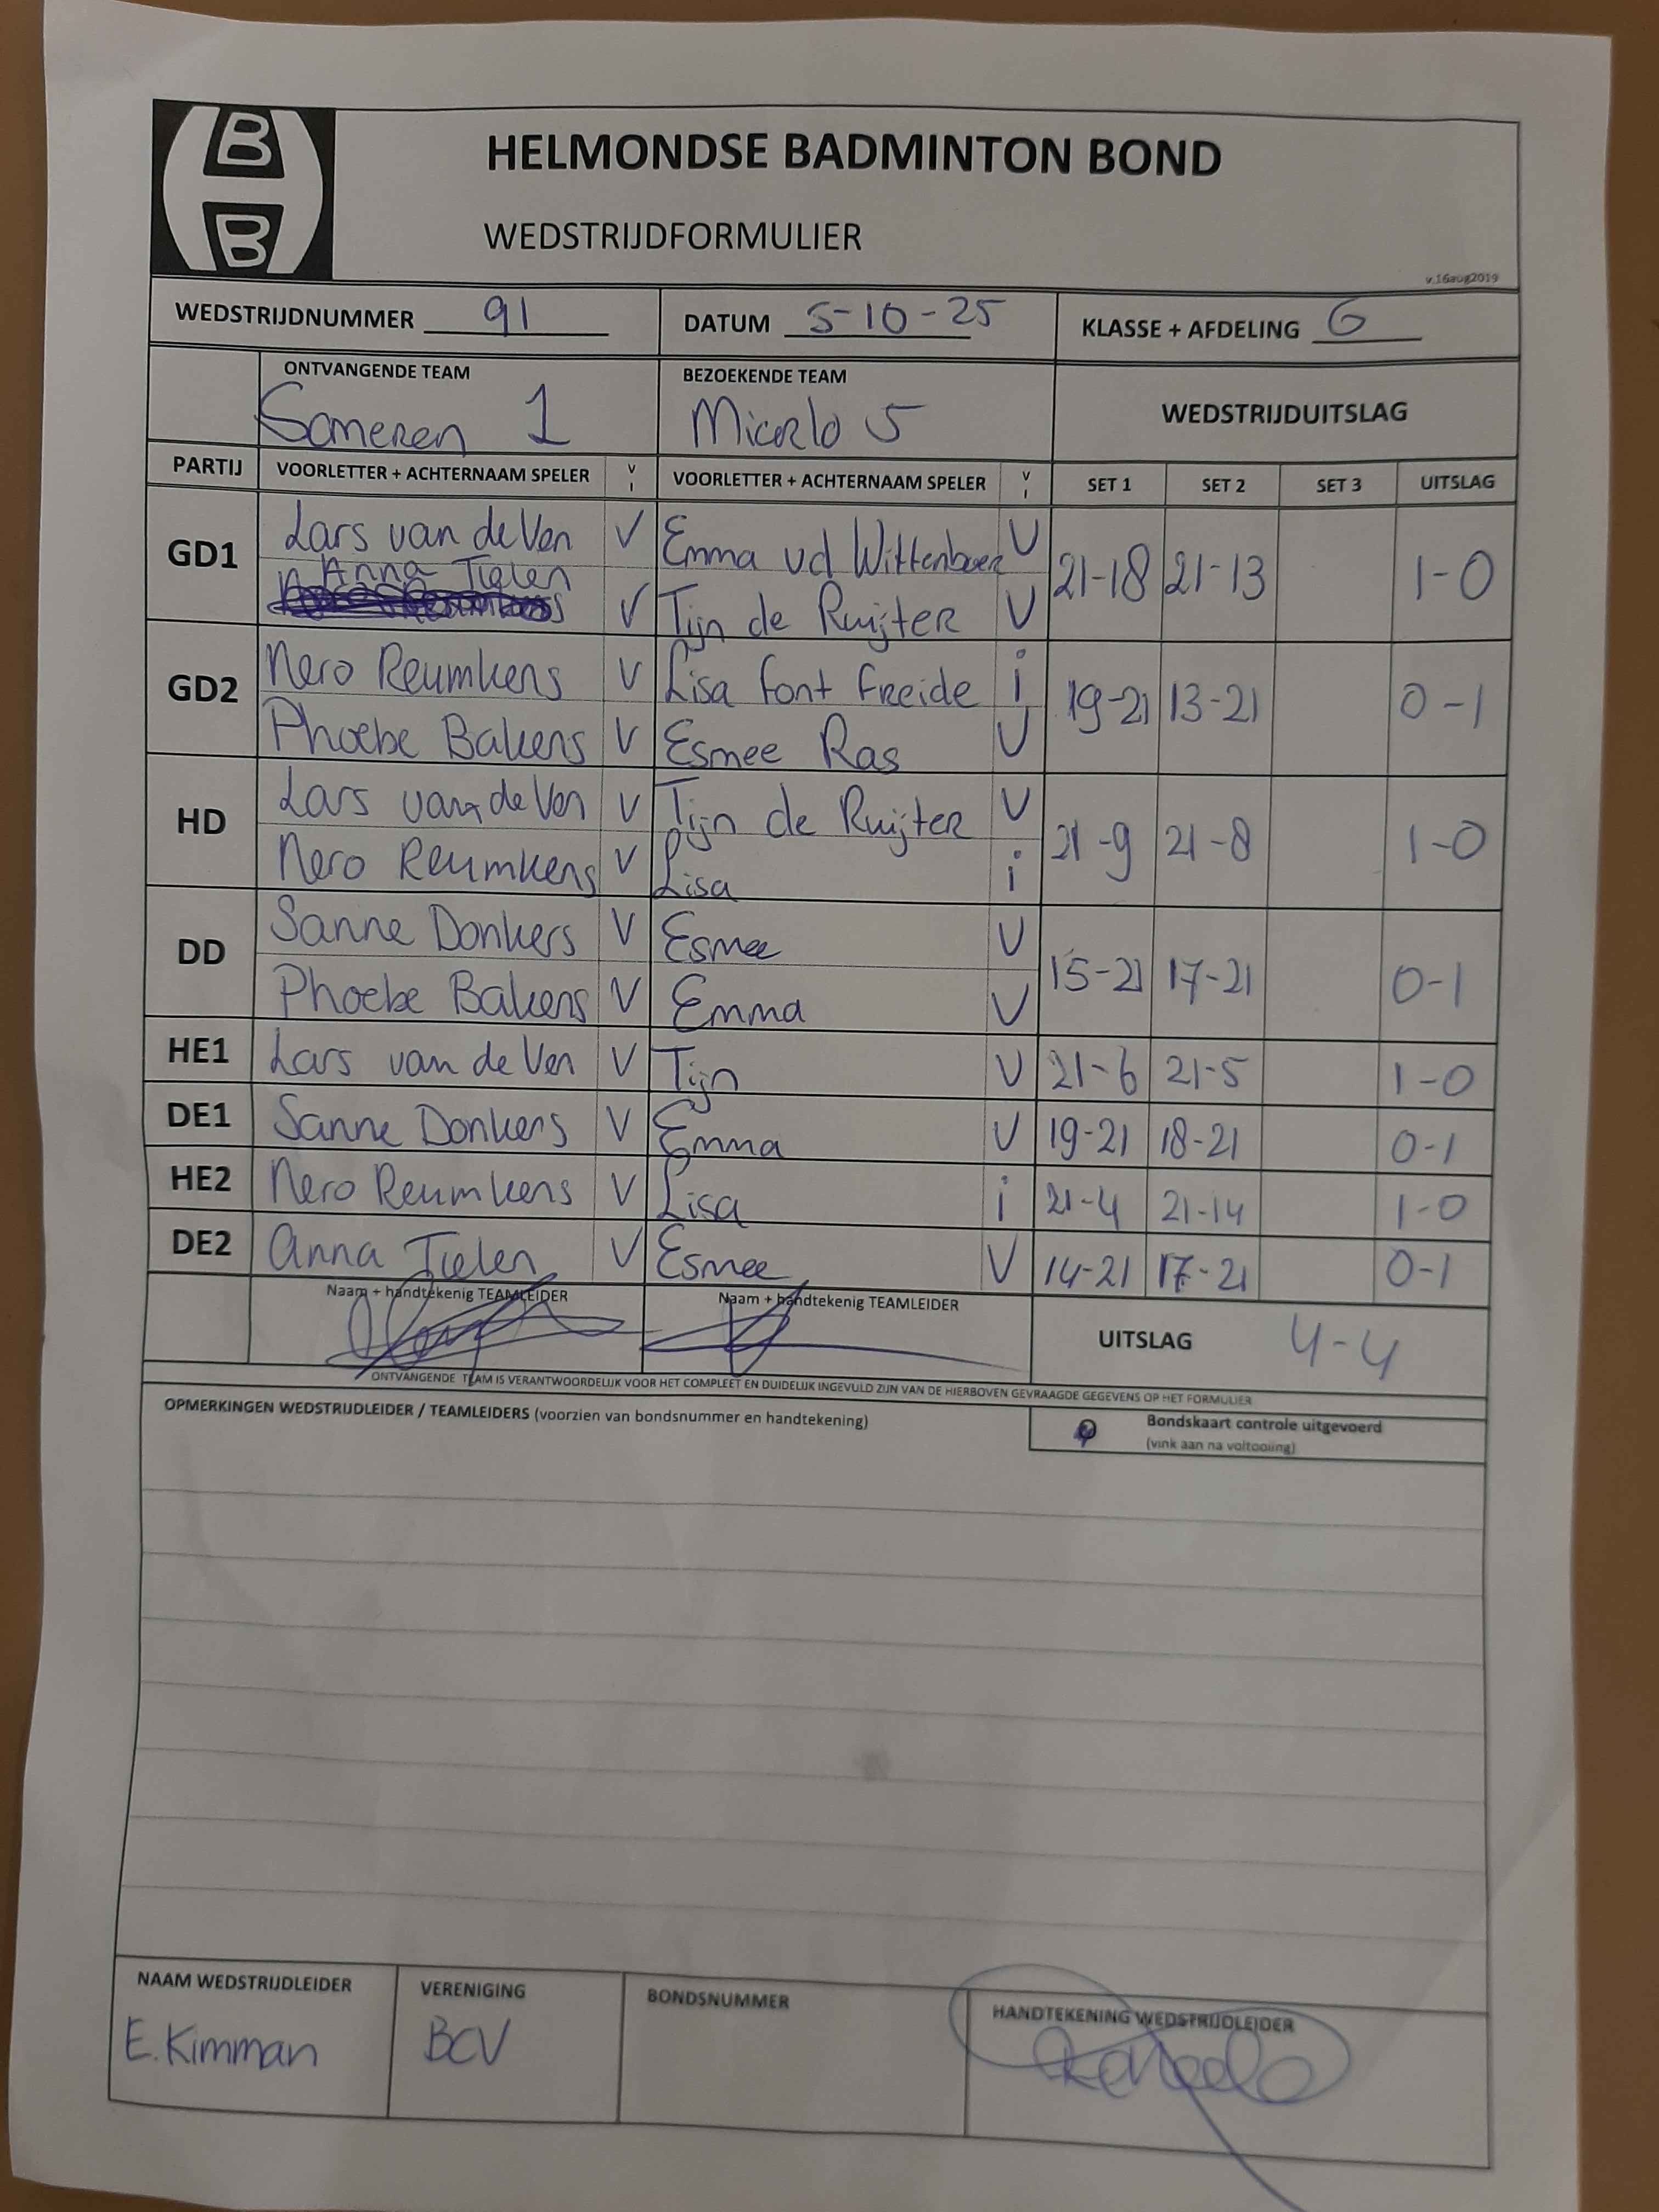 B
B
HELMONDSE BADMINTON BOND
WEDSTRIJDFORMULIER
v.16aug2019
WEDSTRIJDNUMMER 91 DATUM 5-10-25 KLASSE + AFDELING 6
ONTVANGENDE TEAM BEZOEKENDE TEAM
Someren 1 Mierlo 5 WEDSTRIJDUITSLAG
PARTIJ VOORLETTER + ACHTERNAAM SPELER V I VOORLETTER + ACHTERNAAM SPELER V I SET 1 SET 2 SET 3 UITSLAG
GD1 Lars van de Ven V Emma vd Wittenboer V 21-18 21-13 1-0
Anna Tielen V Tijn de Ruijter V
GD2 Nero Reumkens V Lisa Font Freide i 19-21 13-21 0-1
Phoebe Bakens V Esmee Ras V
HD Lars van de Ven V Tijn de Ruijter V 21-9 21-8 1-0
Nero Reumkens V Lisa i
DD Sanne Donkers V Esmee V 15-21 17-21 0-1
Phoebe Bakens V Emma V
HE1 Lars van de Ven V Tijn V 21-6 21-5 1-0
DE1 Sanne Donkers V Emma V 19-21 18-21 0-1
HE2 Nero Reumkens V Lisa i 21-4 21-14 1-0
DE2 Anna Tielen V Esmee V 14-21 17-21 0-1
Naam + handtekenig TEAMLEIDER Naam + handtekenig TEAMLEIDER
UITSLAG 4-4
ONTVANGENDE TEAM IS VERANTWOORDELIJK VOOR HET COMPLEET EN DUIDELIJK INGEVULD ZIJN VAN DE HIERBOVEN GEVRAAGDE GEGEVENS OP HET FORMULIER
OPMERKINGEN WEDSTRIJDLEIDER / TEAMLEIDERS (voorzien van bondsnummer en handtekening)
Bondskaart controle uitgevoerd
(vink aan na voltooiing)
NAAM WEDSTRIJDLEIDER VERENIGING BONDSNUMMER HANDTEKENING WEDSTRIJDLEIDER
E. Kimman BCV